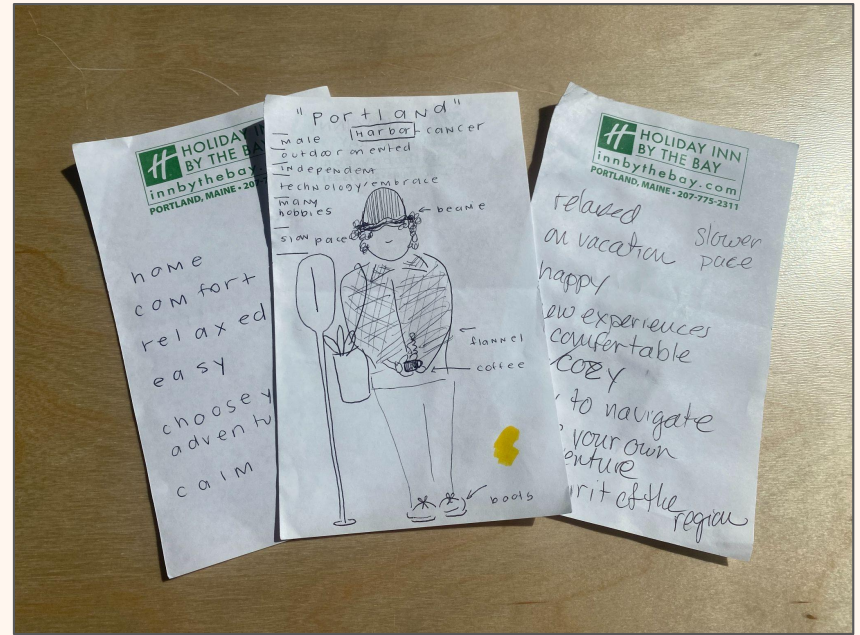 HOLIDAY IN
BY THE BA
innbythebay.
PORTLAND, MAINE • 207
home
comfort
relaxed
easy
choose y
adventu
calm
"Portland"
Harbor
cancer
male
outdoor oriented
independent
technology/embrace
many
hobbies
slow pace
beanie
flannel
coffee
boots
HOLIDAY INN
BY THE BAY
innbythebay.com
PORTLAND, MAINE • 207-775-2311
relaxed
on vacation
slower
pace
happy
ew experiences
comfortable
cozy
to navigate
your own
enture
irit of the
region